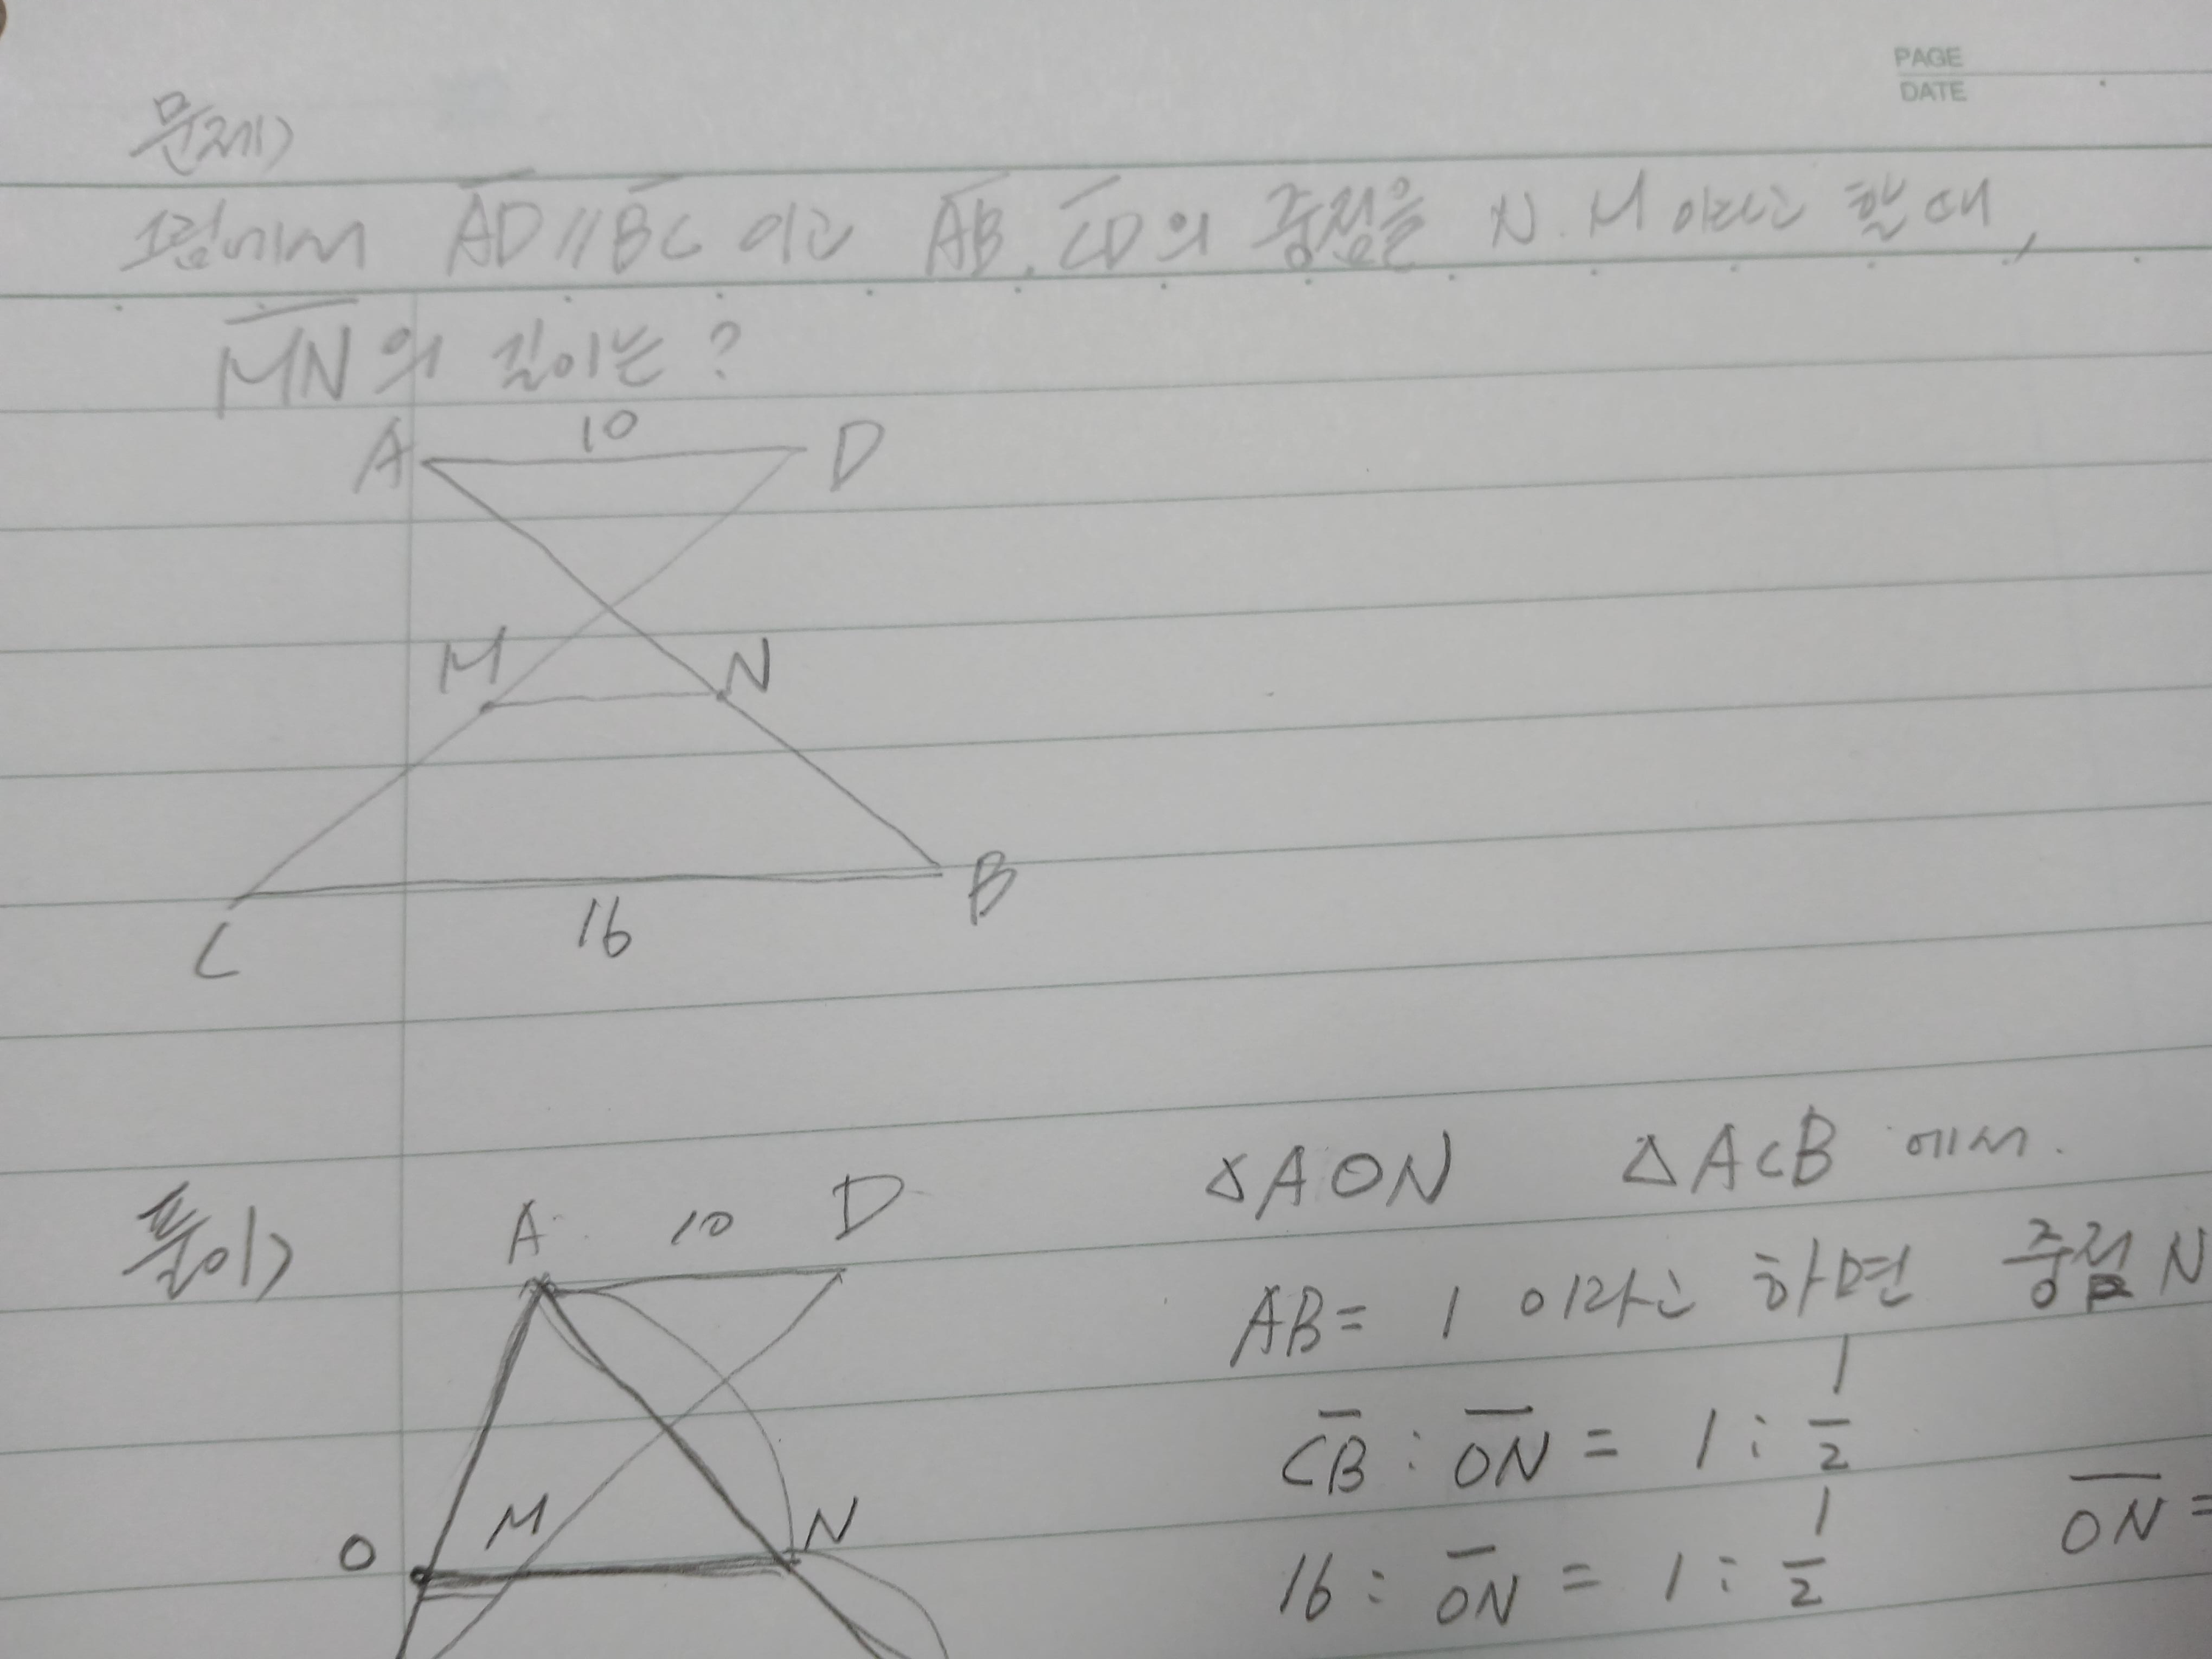 PAGE
DATE
문제)
그림에서 AD // BC 이고 AB, CD의 중점을 N. M 이라고 할 때,
MN의 길이는?
A 10 D
M N
C 16 B
풀이)
A 10 D
O M N
△AON △ACB 에서.
AB = 1 이라고 하면 중점 N
CB : ON = 1 : 1/2
16 : ON = 1 : 1/2 ON =